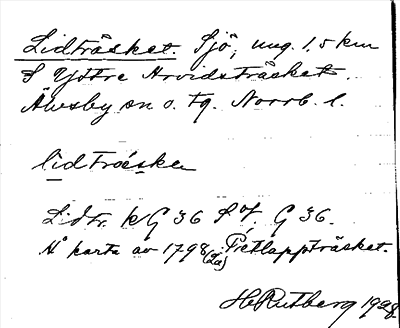 Lidträsket. Sjö, ung. 1.5 km
S Yttre Arvidsträsket.
Älvsby sn o. tg. Norrb. l.
lidträske
Lidtr. kG 36 S of. G 36.
N° karta av 1798 (La) Fietlappträsket.
H Rutberg 1928.